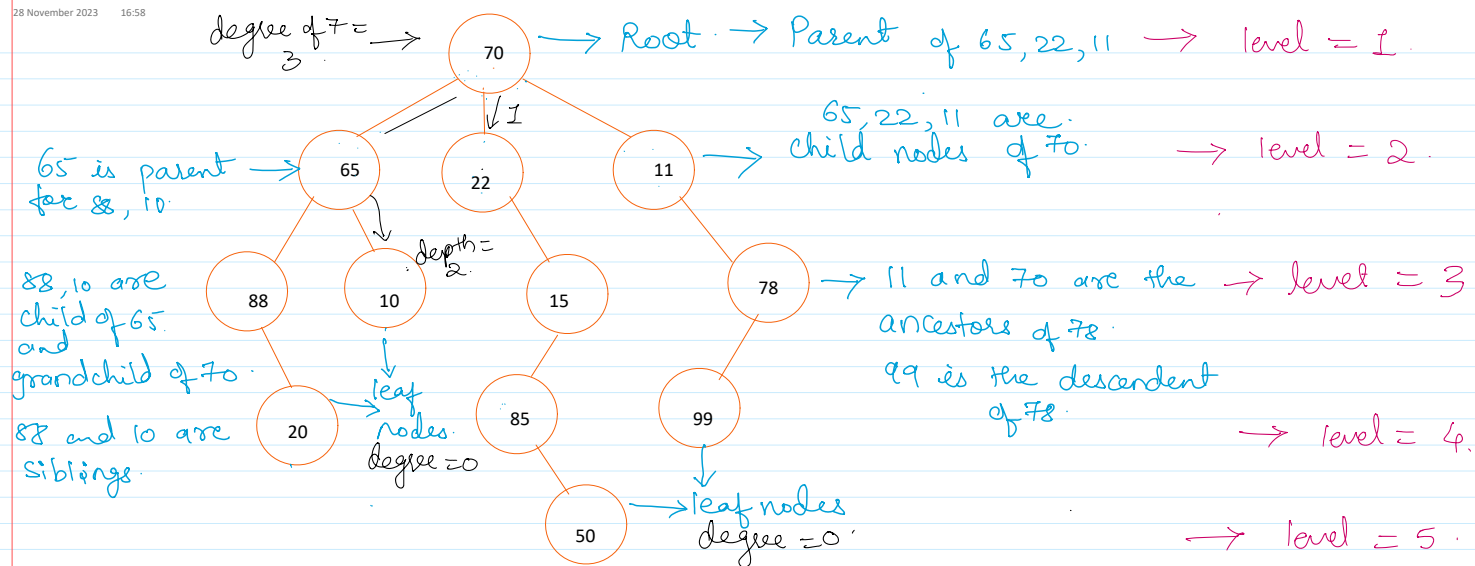 28 November 2023 16:58
degree of 7 =
3
70
Root
Parent of 65, 22, 11
level = 1
1
65, 22, 11 are
child nodes of 70
level = 2
65 is parent
for 88, 10
65
22
11
depth =
2
88, 10 are
child of 65
and
grandchild of 70
88 and 10 are
siblings
88
10
15
78
11 and 70 are the
ancestors of 78
99 is the descendent
of 78
level = 3
leaf
nodes
degree = 0
20
85
99
level = 4
50
leaf nodes
degree = 0
level = 5